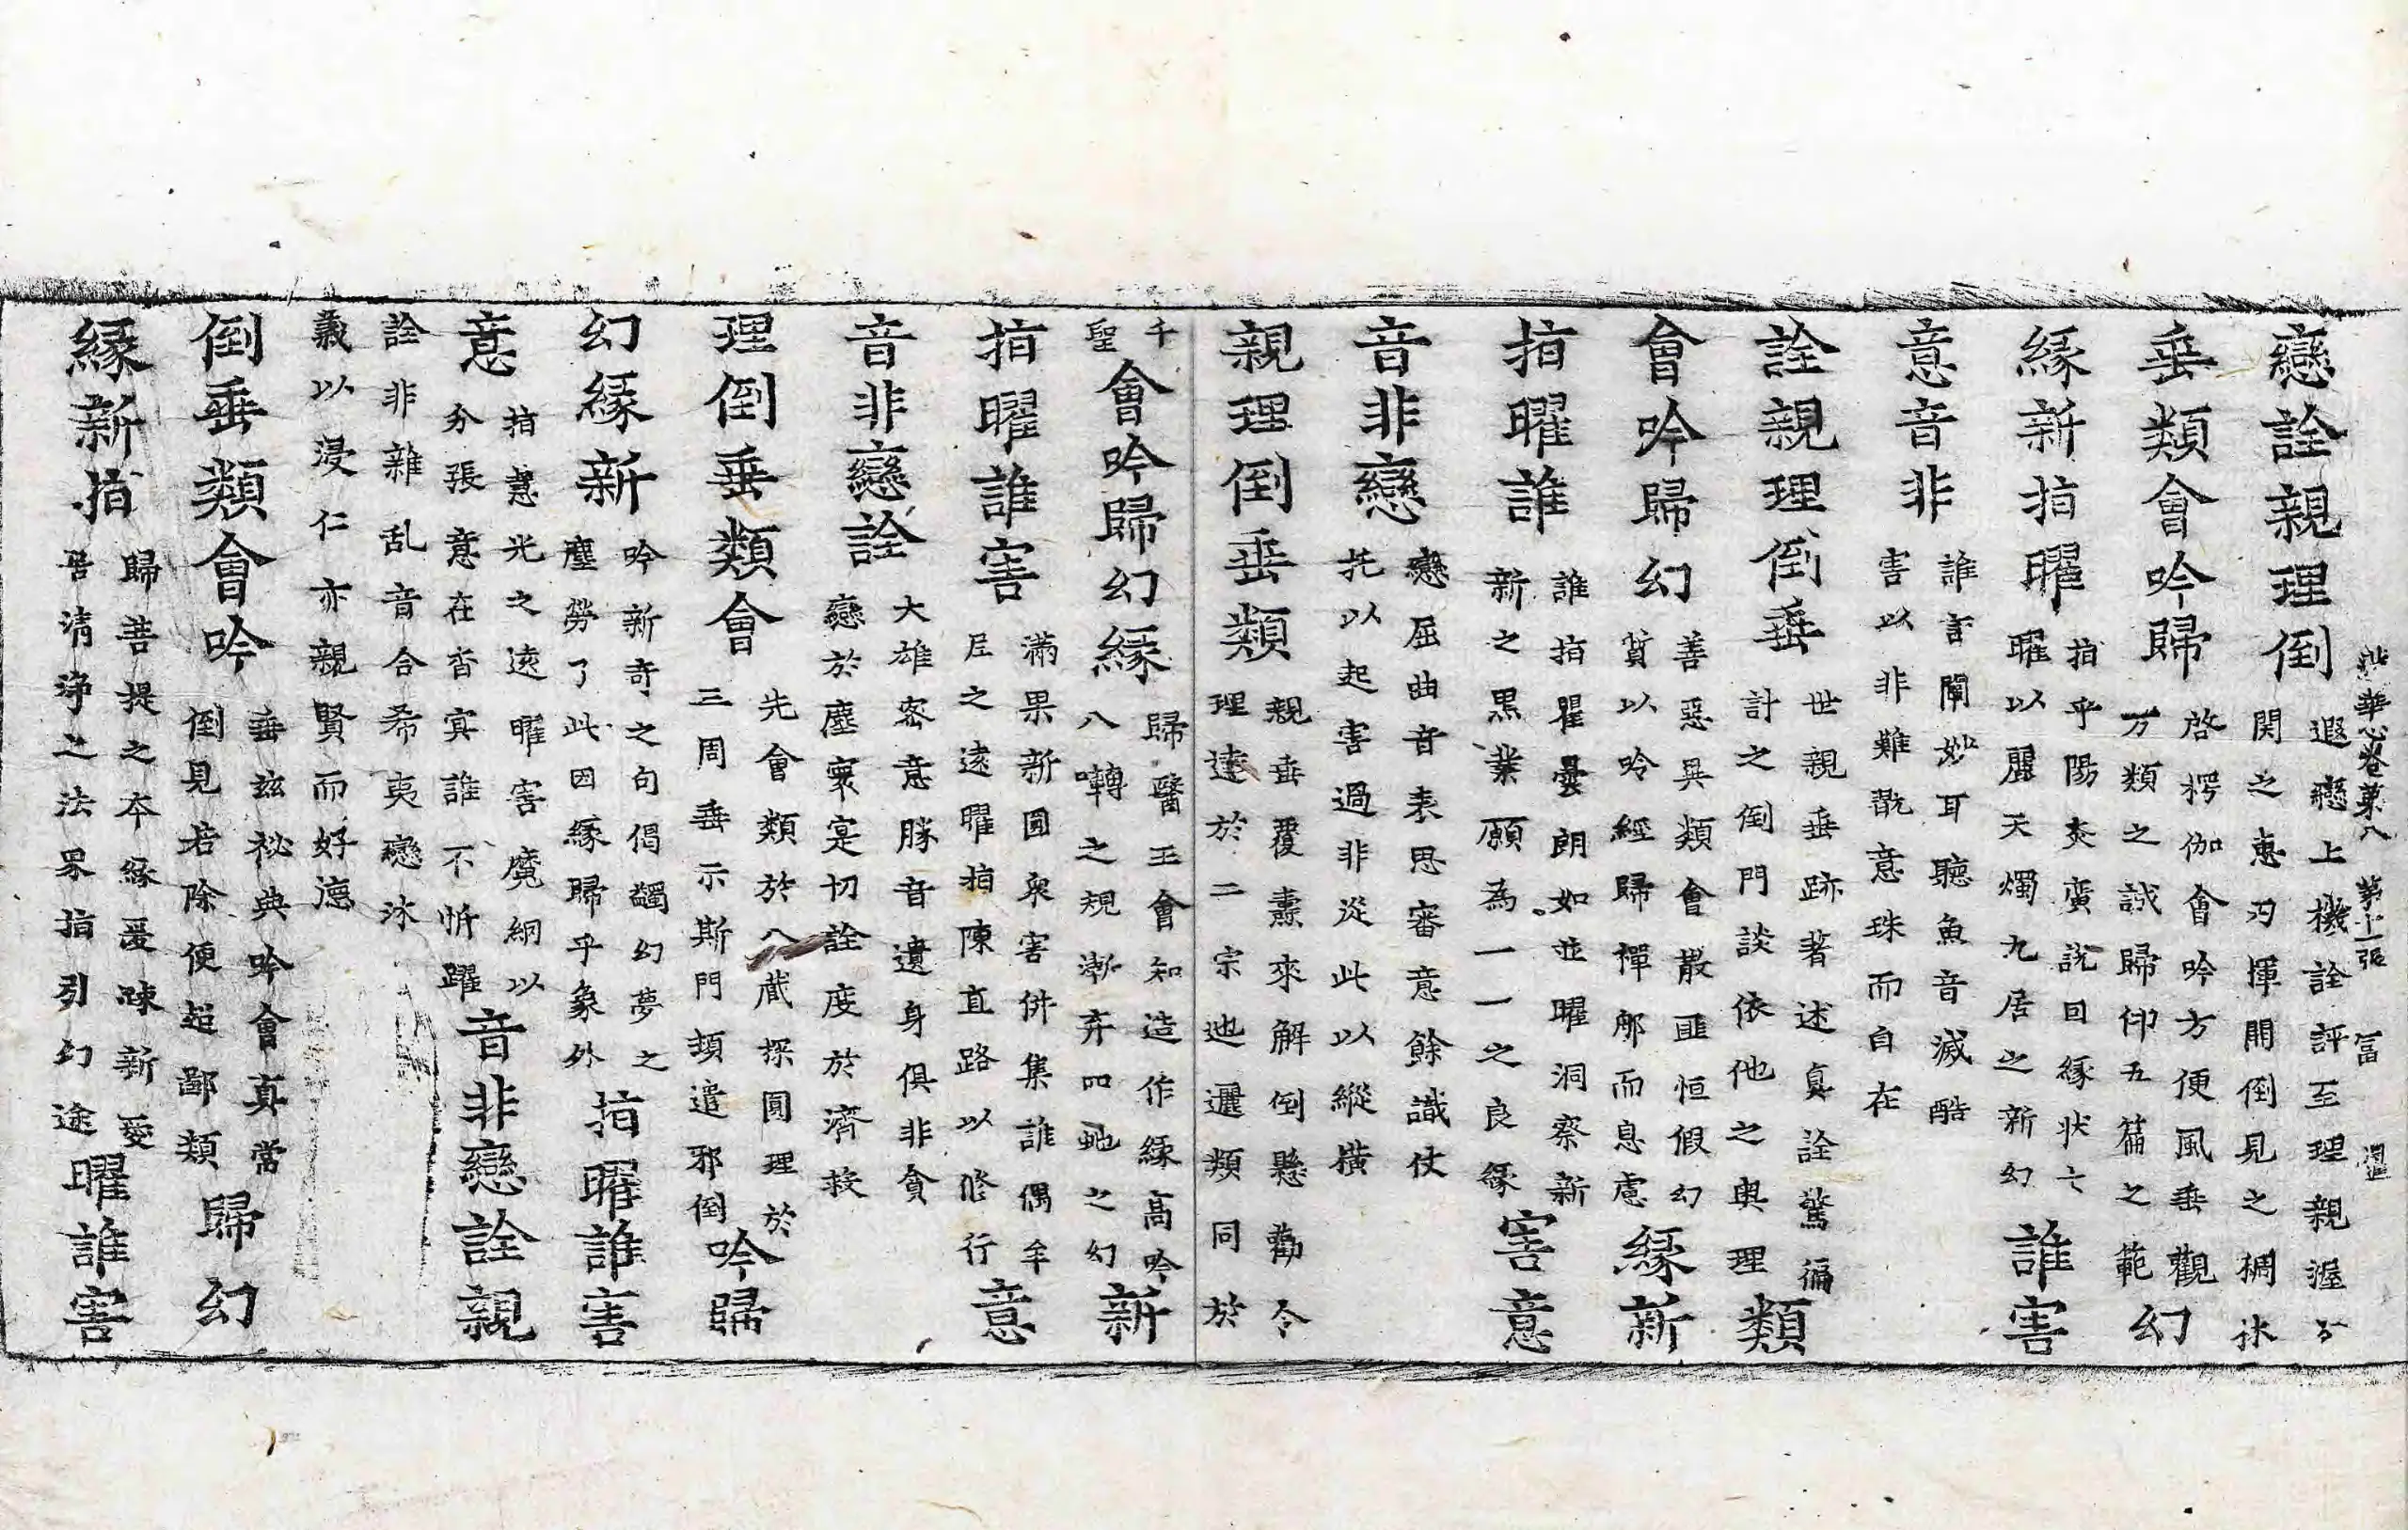 華心卷第八 第十一張 冨
戀詮親理倒
遐戀上機詮評至理親渥
関之惠刃揮開倒見之稠林
垂類會吟歸
啓楞伽會吟方便風垂觀
万類之誠歸仰五篇之範
幻
緣新指曜
指乎陽炎廣說回緣狀
曜以麗天燭九居之新幻
誰害
意音非
誰言闡妙耳聽魚音滅酷
害以非難翫意珠而自在
詮親理倒垂
世親垂跡著述真詮驚徧
計之倒門談依他之奥理
類
會吟歸幻
善惡異類會叢匪恒假幻
質以吟經歸禪那而息慮
緣新
指曜誰
誰指瞿曇朗如並曜洞察新
新之黒業願為一一之良緣
害意
音非戀
戀屈曲音表思審意餘識仗
托以起害過非從此以縱橫
親理倒垂類
親垂覆燾來解倒懸勸令
理達於二宗迆邐類同於
千
聖
會吟歸幻緣
歸醫王會知造作緣高吟
八囀之規漸弃四虵之幻
新
指曜誰害
滿果新圓衆害併集誰偶牟
尼之遠曜指陳直路以修行
意
音非戀詮
大雄密意勝音遺身俱非貪
戀於塵寰寔切詮度於濟救
理倒垂類會
先會類於八藏探圓理於
三周垂示斯門頓遣邪倒
吟歸
幻緣新
吟新奇之句偈蠲幻夢之
塵勞了此因緣歸乎象外
指曜誰害
意
指慧光之遠曜害魔綱以
分張意在杳冥誰不忻躍
音非戀詮親
詮非雜乱音合希夷戀沐
義以浸仁亦親賢而好德
倒垂類會吟
垂茲祕典吟會真常
倒見若除便超鄙類
歸幻
緣新指
歸菩提之本緣憂踈新愛
居清淨之法界指引幻途
曜誰害